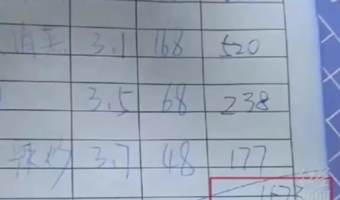 3.1 168 520
3.5 68 238
辣炒 3.7 48 177
1673